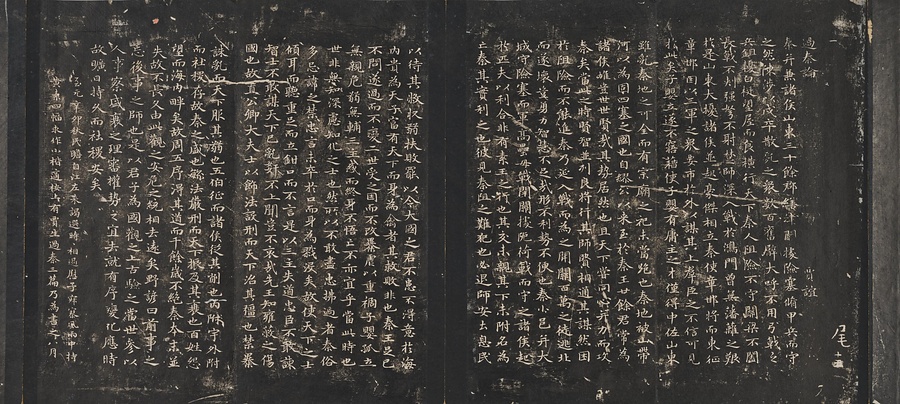 過秦論
賈誼
秦并兼諸侯山東三十餘郡繕津關據險塞脩甲兵而守
之然陳涉以戍卒散亂之眾數百奮臂大呼不用弓戟之
兵鉏櫌白梃望屋而食橫行天下秦人阻險不守關梁不闔
長戟不刺強弩不射楚師深入戰於鴻門曾無藩籬之艱
於是山東大擾諸侯並起豪俊相立秦使章邯將而東征
章邯因以三軍之眾要市於外以謀其上群臣之不信可見
於此矣子嬰立遂不寤藉使子嬰有庸主之材僅得中佐山東
雖亂秦地之可全而有宗廟之祀未當絕也秦地被山帶
河以為固四塞之國也自繆公以來至於秦王廿餘君常為
諸侯雄豈世世賢哉其勢居然也且天下嘗同心并力而攻
秦矣當此之時賢智並列良將行其師賢相通其謀然困
於阻險而不能進秦乃延入戰而為之開關百萬之徒逃北
而遂壞豈勇力智慧不足哉形不利勢不便也秦小邑并大
城守險塞而軍高壘毋戰閉關據阨荷戟而守之諸侯起
於匹夫以利合非有素王之行也其交未親其下未附名為
亡秦其實利之也彼見秦阻之難犯也必退師安土息民
尾
以待其敝收弱扶罷以令大國之君不患不得意於海
內貴為天子富有天下而身為禽者其救敗非也秦王足己
不問遂過而不變二世受之因而不改暴虐以重禍子嬰孤立
無親危弱無輔三主惑而終身不悟亡不亦宜乎當此時也
世非無深慮知化之士也然所以不敢盡忠拂過者秦俗
多忌諱之禁忠言未卒於口而身為戮沒矣故使天下之士
傾耳而聽重足而立鉗口而不言是以三主失道忠臣不敢諫
智士不敢謀天下已亂姦不上聞豈不哀哉先王知雍蔽之傷
國也故置公卿大夫士以飾法設刑而天下治其彊也禁暴
誅亂而天下服其弱也五伯征而諸侯從其削也內守外附
而社稷存故秦之盛也繁法嚴刑而天下振及其衰也百姓怨
望而海內畔矣故周五序得其道而千餘歲不絕秦本末並
失故不長久由此觀之安危之統相去遠矣野諺曰前事之
不忘後事之師也是以君子為國觀之上古驗之當世參以
人事察盛衰之理審權勢之宜去就有序變化應時
故曠日持久而社稷安矣